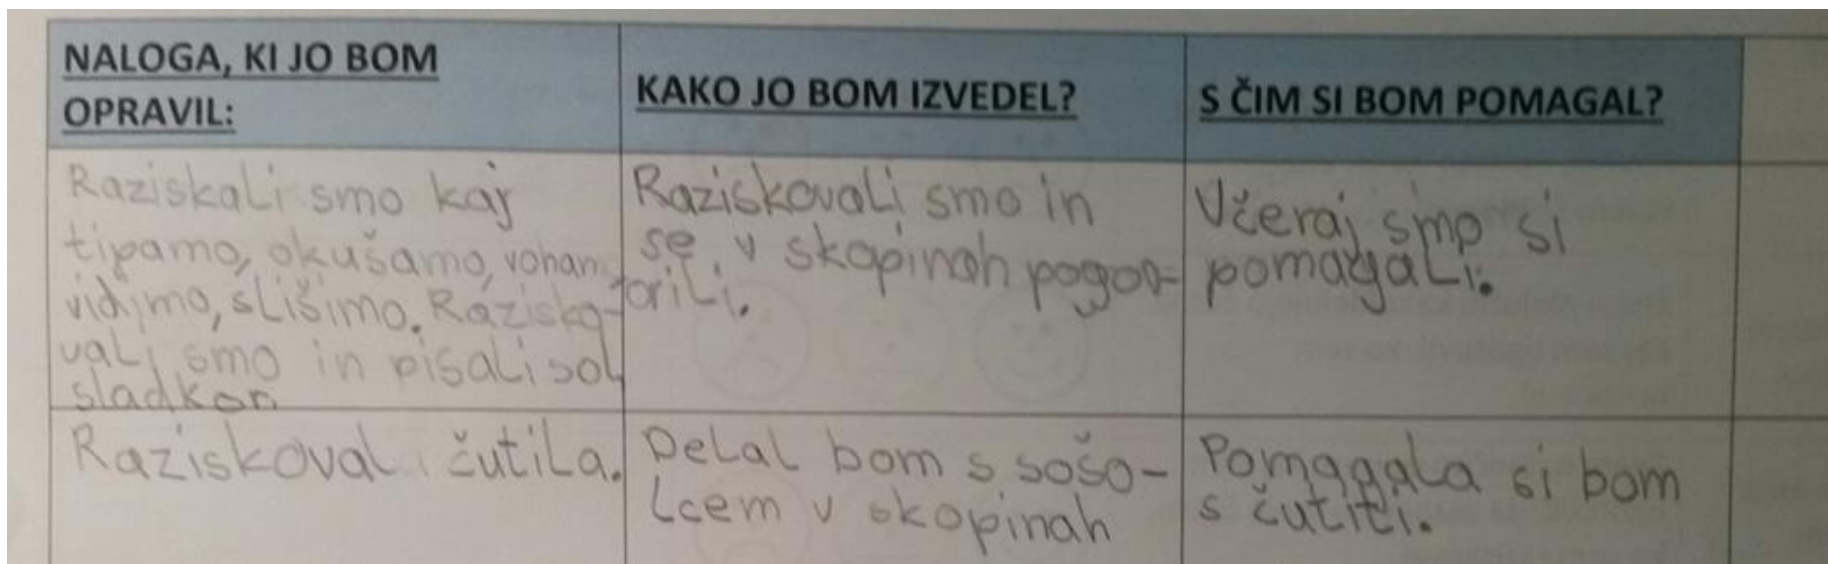 NALOGA, KI JO BOM
OPRAVIL:
KAKO JO BOM IZVEDEL?
S ČIM SI BOM POMAGAL?
Raziskali smo kaj
tipamo, okušamo, vohamo,
vidimo, slišimo. Razisko-
vali smo in pisali sol
sladkor.
Raziskovali smo in
se v skopinah pogov-
orili.
Včeraj smo si
pomagali.
Raziskoval čutila.
Delal bom s sošo-
lcem v skopinah
Pomagala si bom
s čutiti.